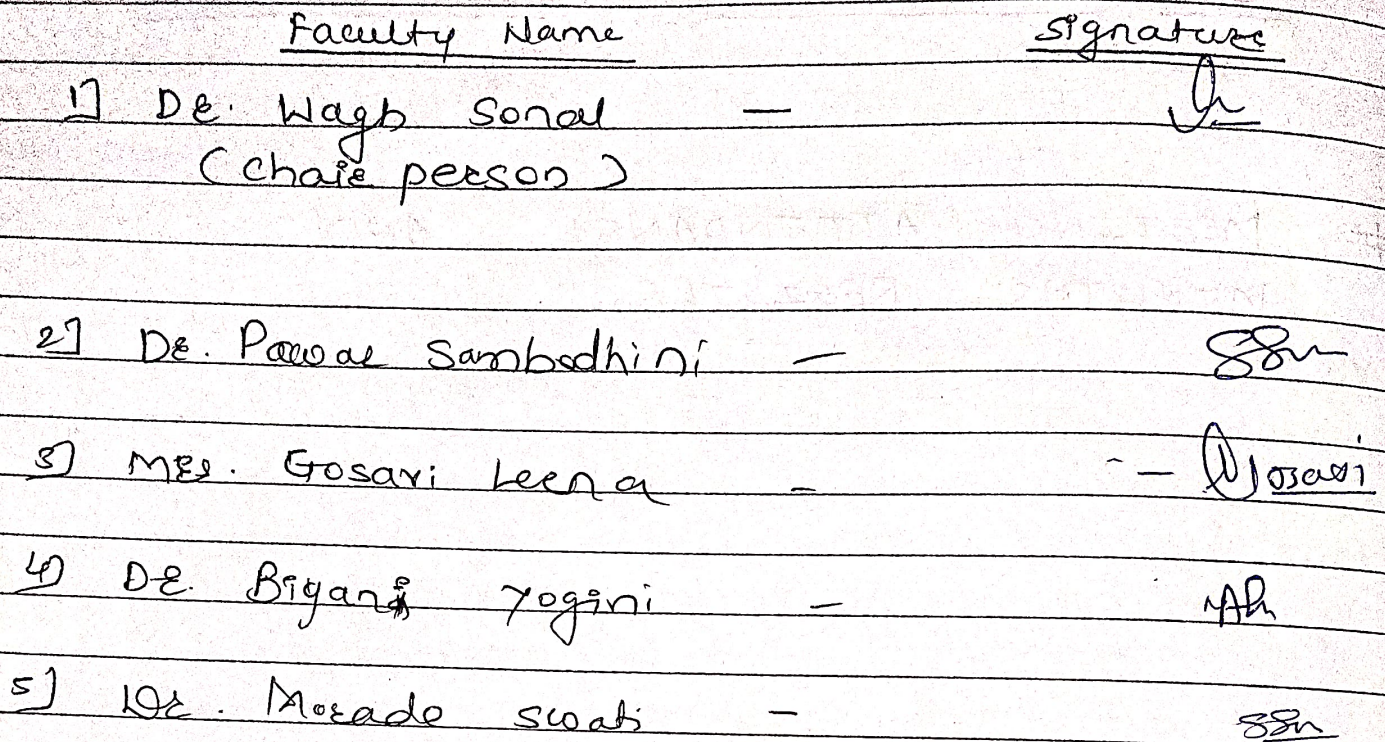 Faculty Name Signature
1] Dr. Wagh Sonal —
(Chair person)
2] Dr. Pawar Sambodhini —
3] Mrs. Gosavi Leena - - — Gosavi
4) Dr. Biyani Yogini —
5] Dr. Morade Swati -